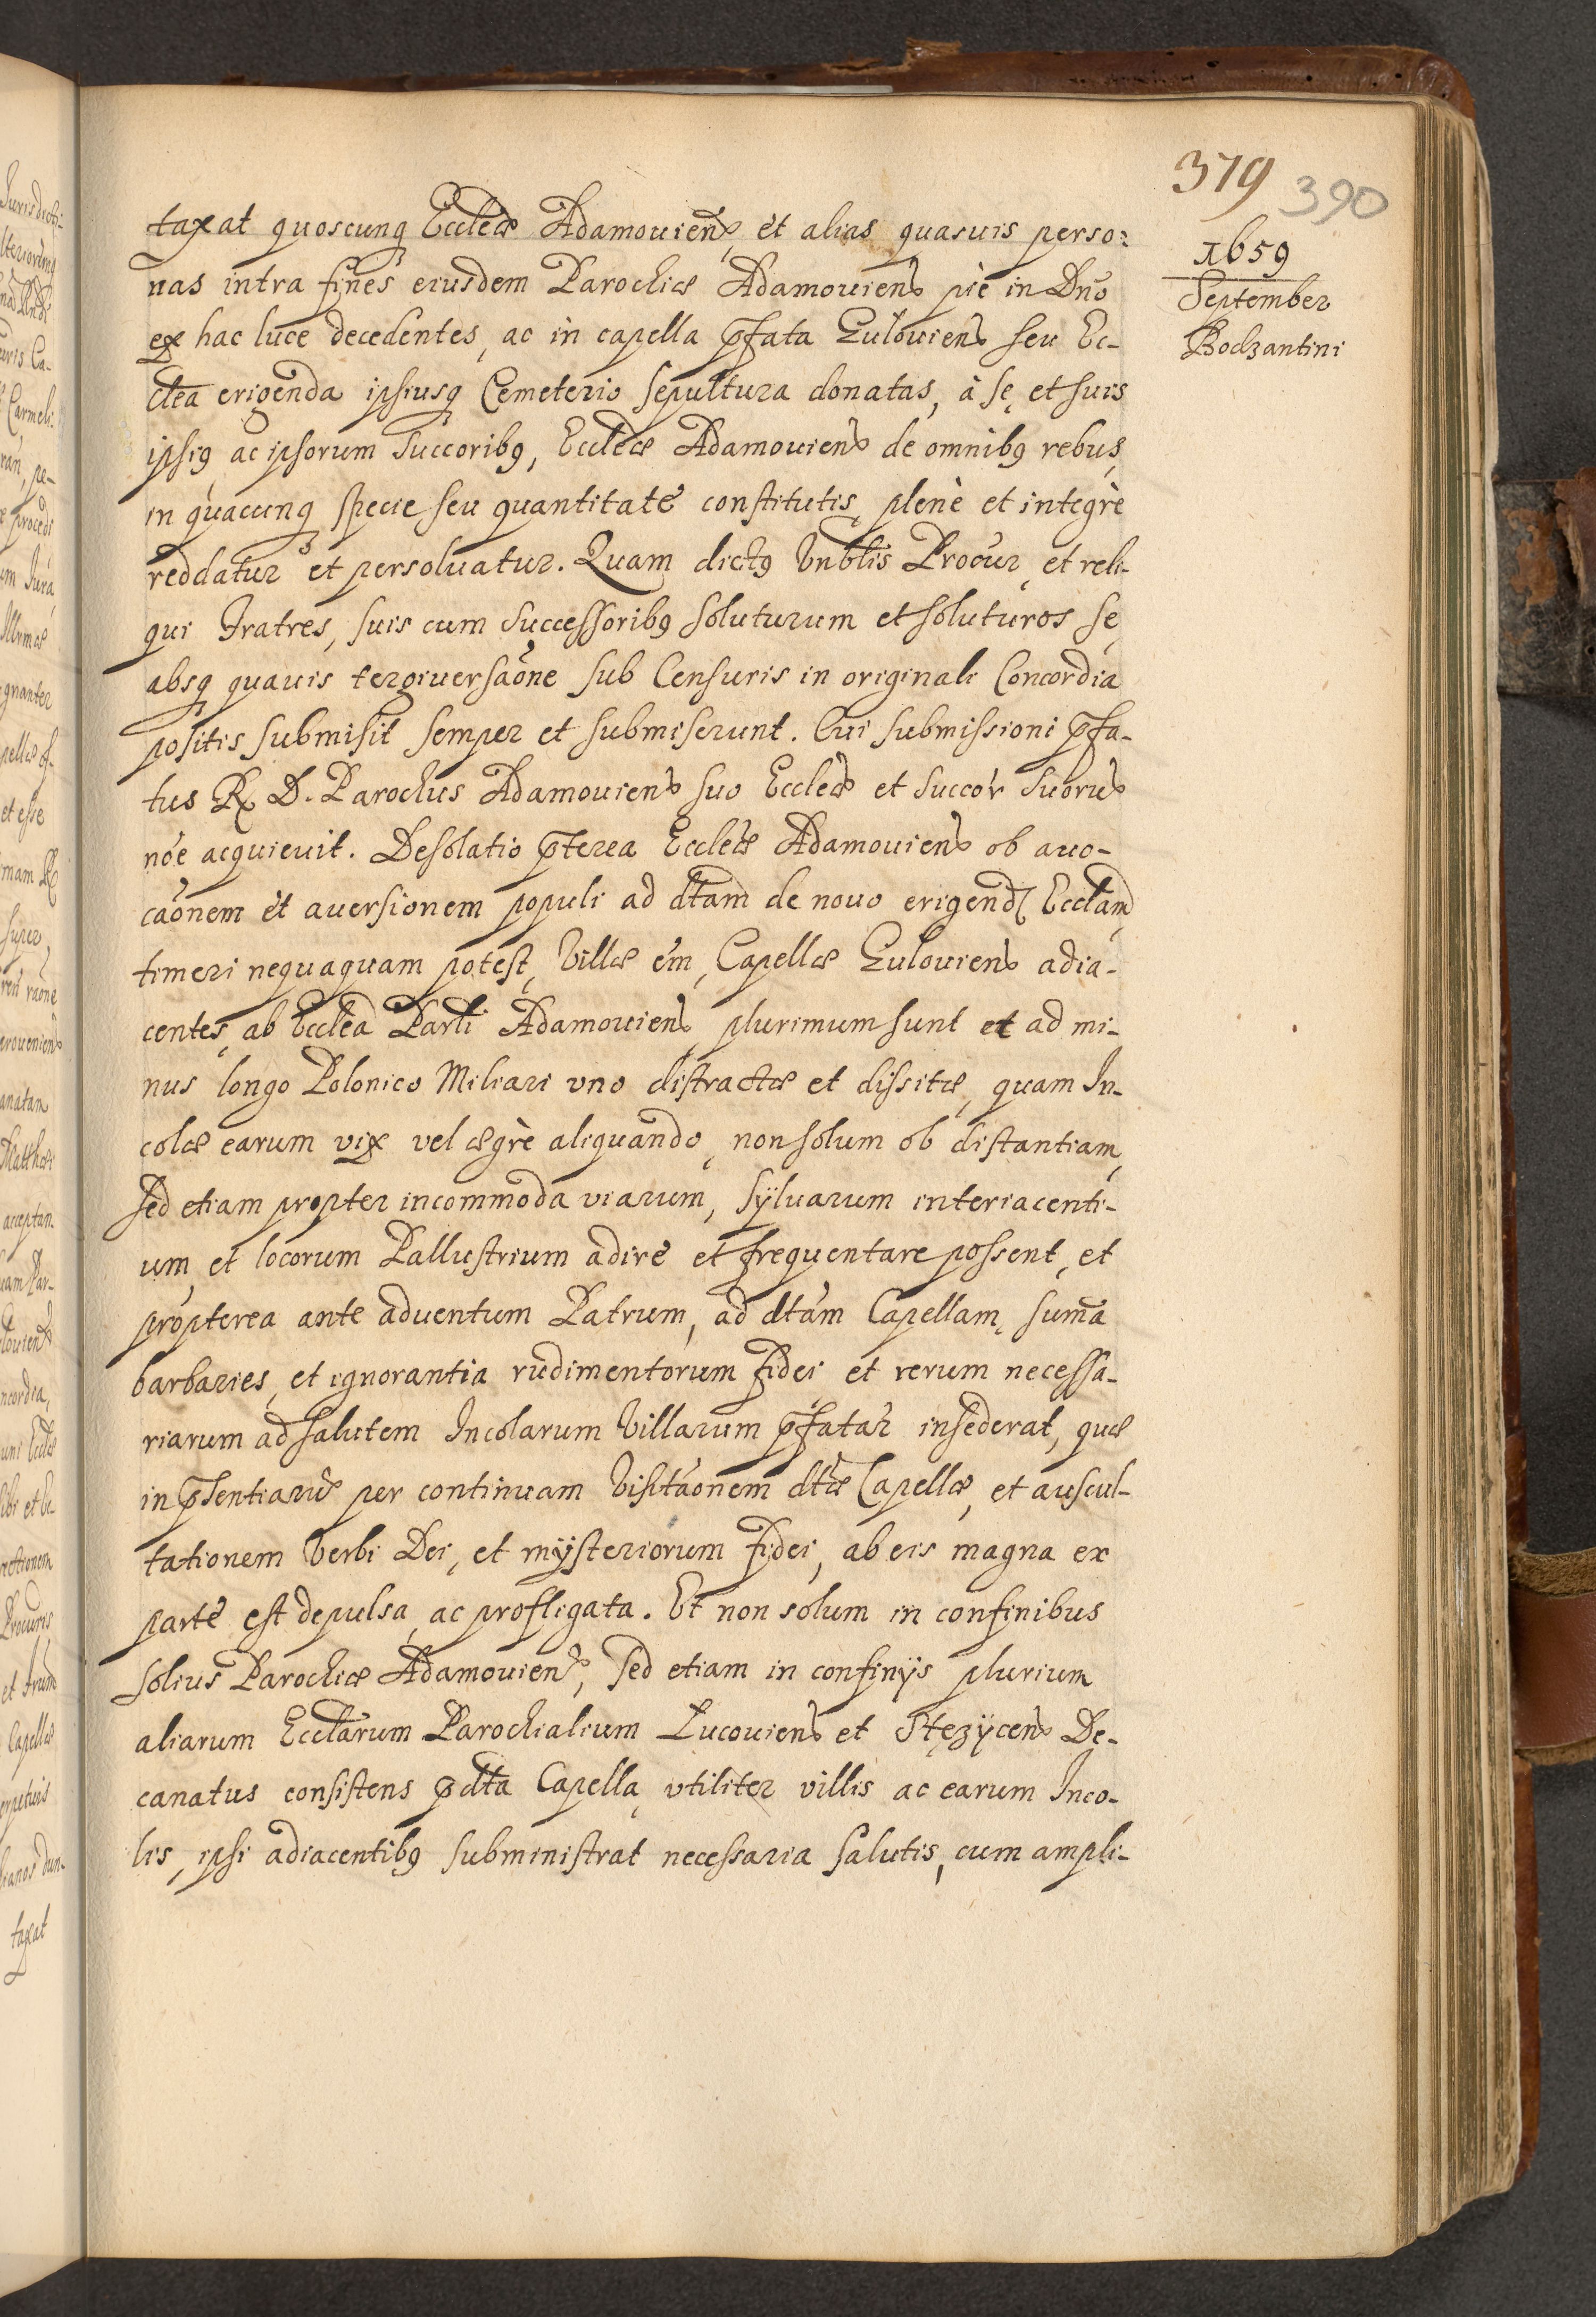 379 390
1659
September
Bodzantini
taxat quoscunq Eccleæ Adamouiens, et alias quasuis perso:
nas intra fines eiusdem Parochiæ Adamouiens piè in Dno
ex hac luce decedentes, ac in capella pfata Gułouiens seu Ec-
clea erigenda ipsiusq Cemeterio sepultura donatas, à se, et suis
ipsiq ac ipsorum Succoribq, Eccleæ Adamouiens de omnibq rebus,
in quacunq specie seu quantitate constitutis, plenè et integrè
reddatur et persoluatur. Quam dictq Vnblis Procur, et reli-
qui Fratres, suis cum Successoribq soluturum et soluturos se,
absq quauis tergiuersaone sub Censuris in originali Concordia
positis submisit semper et submiserunt. Cui submissioni pfa-
tus R D. Parochus Adamouiens suo Eccleæ et succor suorus
nóe acquieuit. Desolatio pterea Eccleæ Adamouiens ob auo-
caonem et auersionem populi ad dtam de nouo erigend Ecclam,
timeri nequaquam potest, Villæ em, Capellæ Gułouiens adia-
centes, ab Ecclea Parli Adamouiens, plurimum sunt et ad mi-
nus longo Polonico Miliari vno distractæ et dissitæ, quam In-
colæ earum vix vel ægrè aliquando, non solum ob distantiam,
sed etiam propter incommoda viarum, syluarum interiacenti-
um, et locorum Pallustrium adire et frequentare possent, et
propterea ante aduentum Patrum, ad dtam Capellam, suma
barbaries, et ignorantia rudimentorum fidei et rerum necessa-
riarum ad salutem Incolarum Villarum pfatar insederat, quæ
in psentiarũ per continuam Visitaonem dtæ Capellæ, et auscul-
tationem Verbi Dei, et mÿsteriorum fidei, ab eis magna ex
parte est depulsa, ac profligata. Et non solum in confinibus
solius Parochiæ Adamouiens, sed etiam in confinÿs plurium
aliarum Ecclarum Parochialium Lucouiens et Stęzÿcens De-
canatus consistens pdta Capella, vtiliter villis ac earum Inco-
lis, ipsi adiacentibq subministrat necessaria salutis, cum ampli-